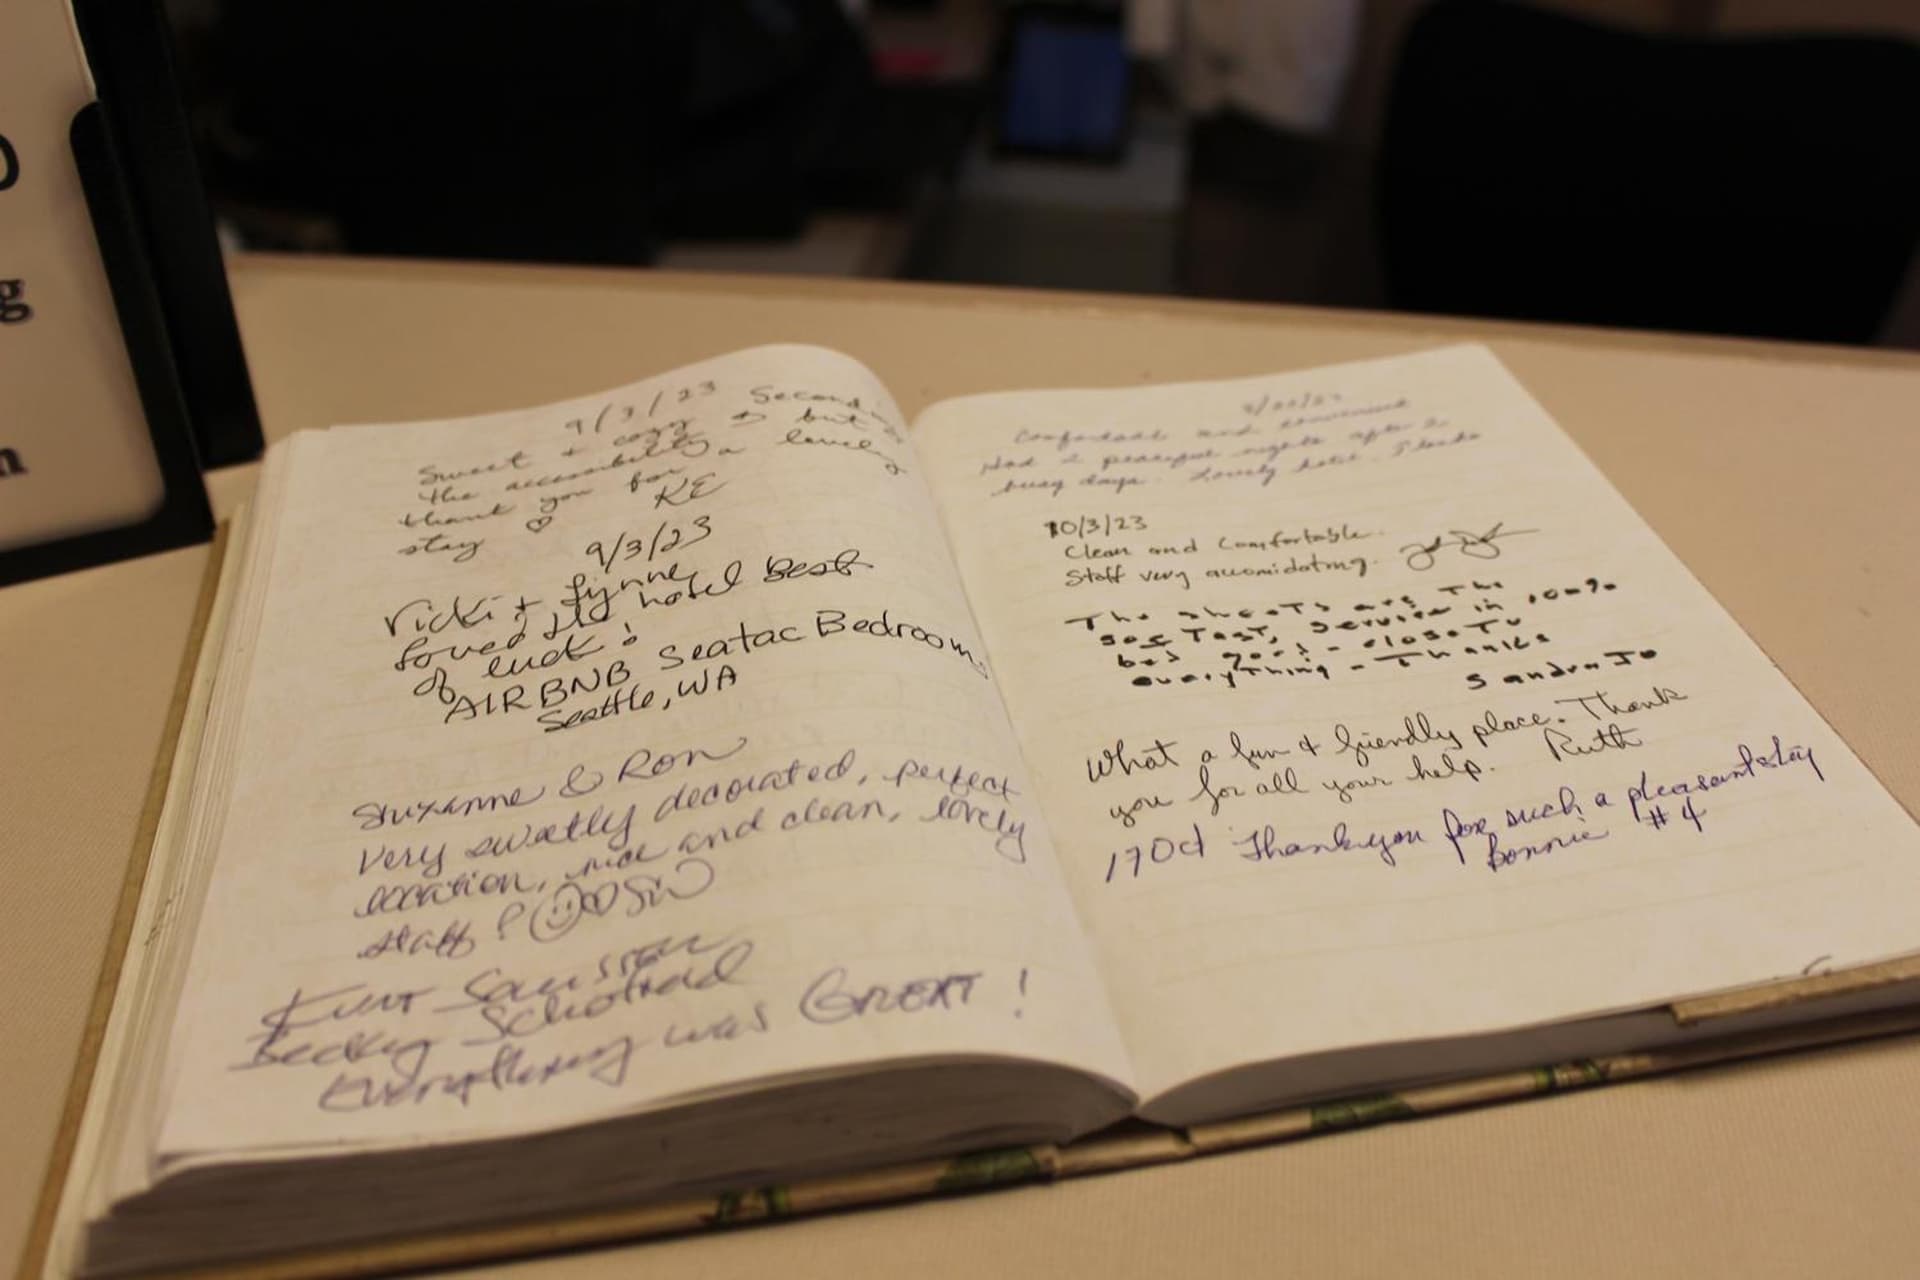 g
9/3/23 Second
Sweet + cozy but
the accessibility a lovely
thank you for
stay ♡ KE
9/3/23
Vicki + Lynne
Loved the hotel Best
of luck!
AIRBNB Seatac Bedroom
Seattle, WA
Suzanne & Ron
Very sweetly decorated, perfect
location, nice and clean, lovely
staff! ☺♡
Kurt
Becky
Everything was GREAT!
Comfortable and convenient
Had 2 peaceful nights after 2
busy days. Lovely hotel.
10/3/23
Clean and Comfortable.
Staff very accomidating.
The sheets are The
SofTest, Service in 100%
bed good - close To
everyThing - Thanks
Sandra Jo
What a fun & friendly place. Thank
you for all your help. Ruth
17 Oct Thank you for such a pleasant stay
Bonnie #4